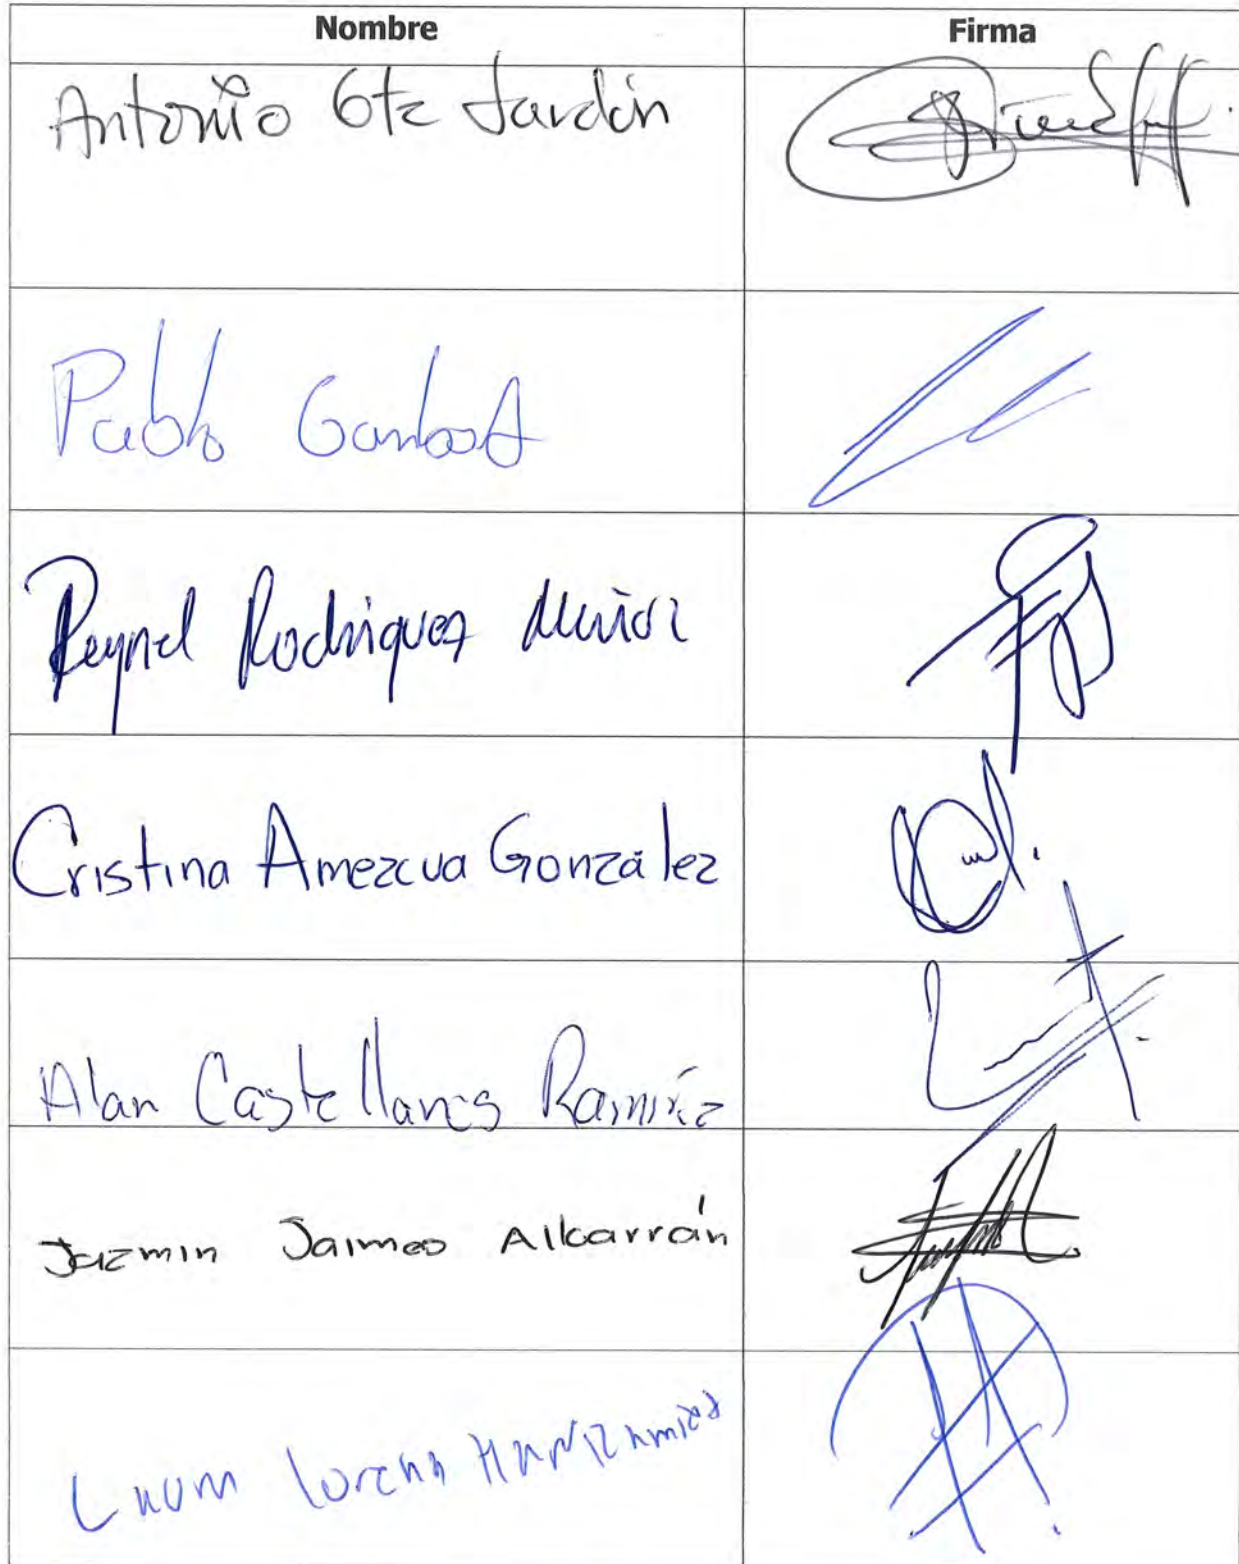 Nombre Firma
Antonio Gtz Jardón
Pablo Gamboa
Reynel Rodriguez Muñoz
Cristina Amezcua González
Alan Castellanos Ramírez
Jazmin Jaimes Albarrán
Lorena